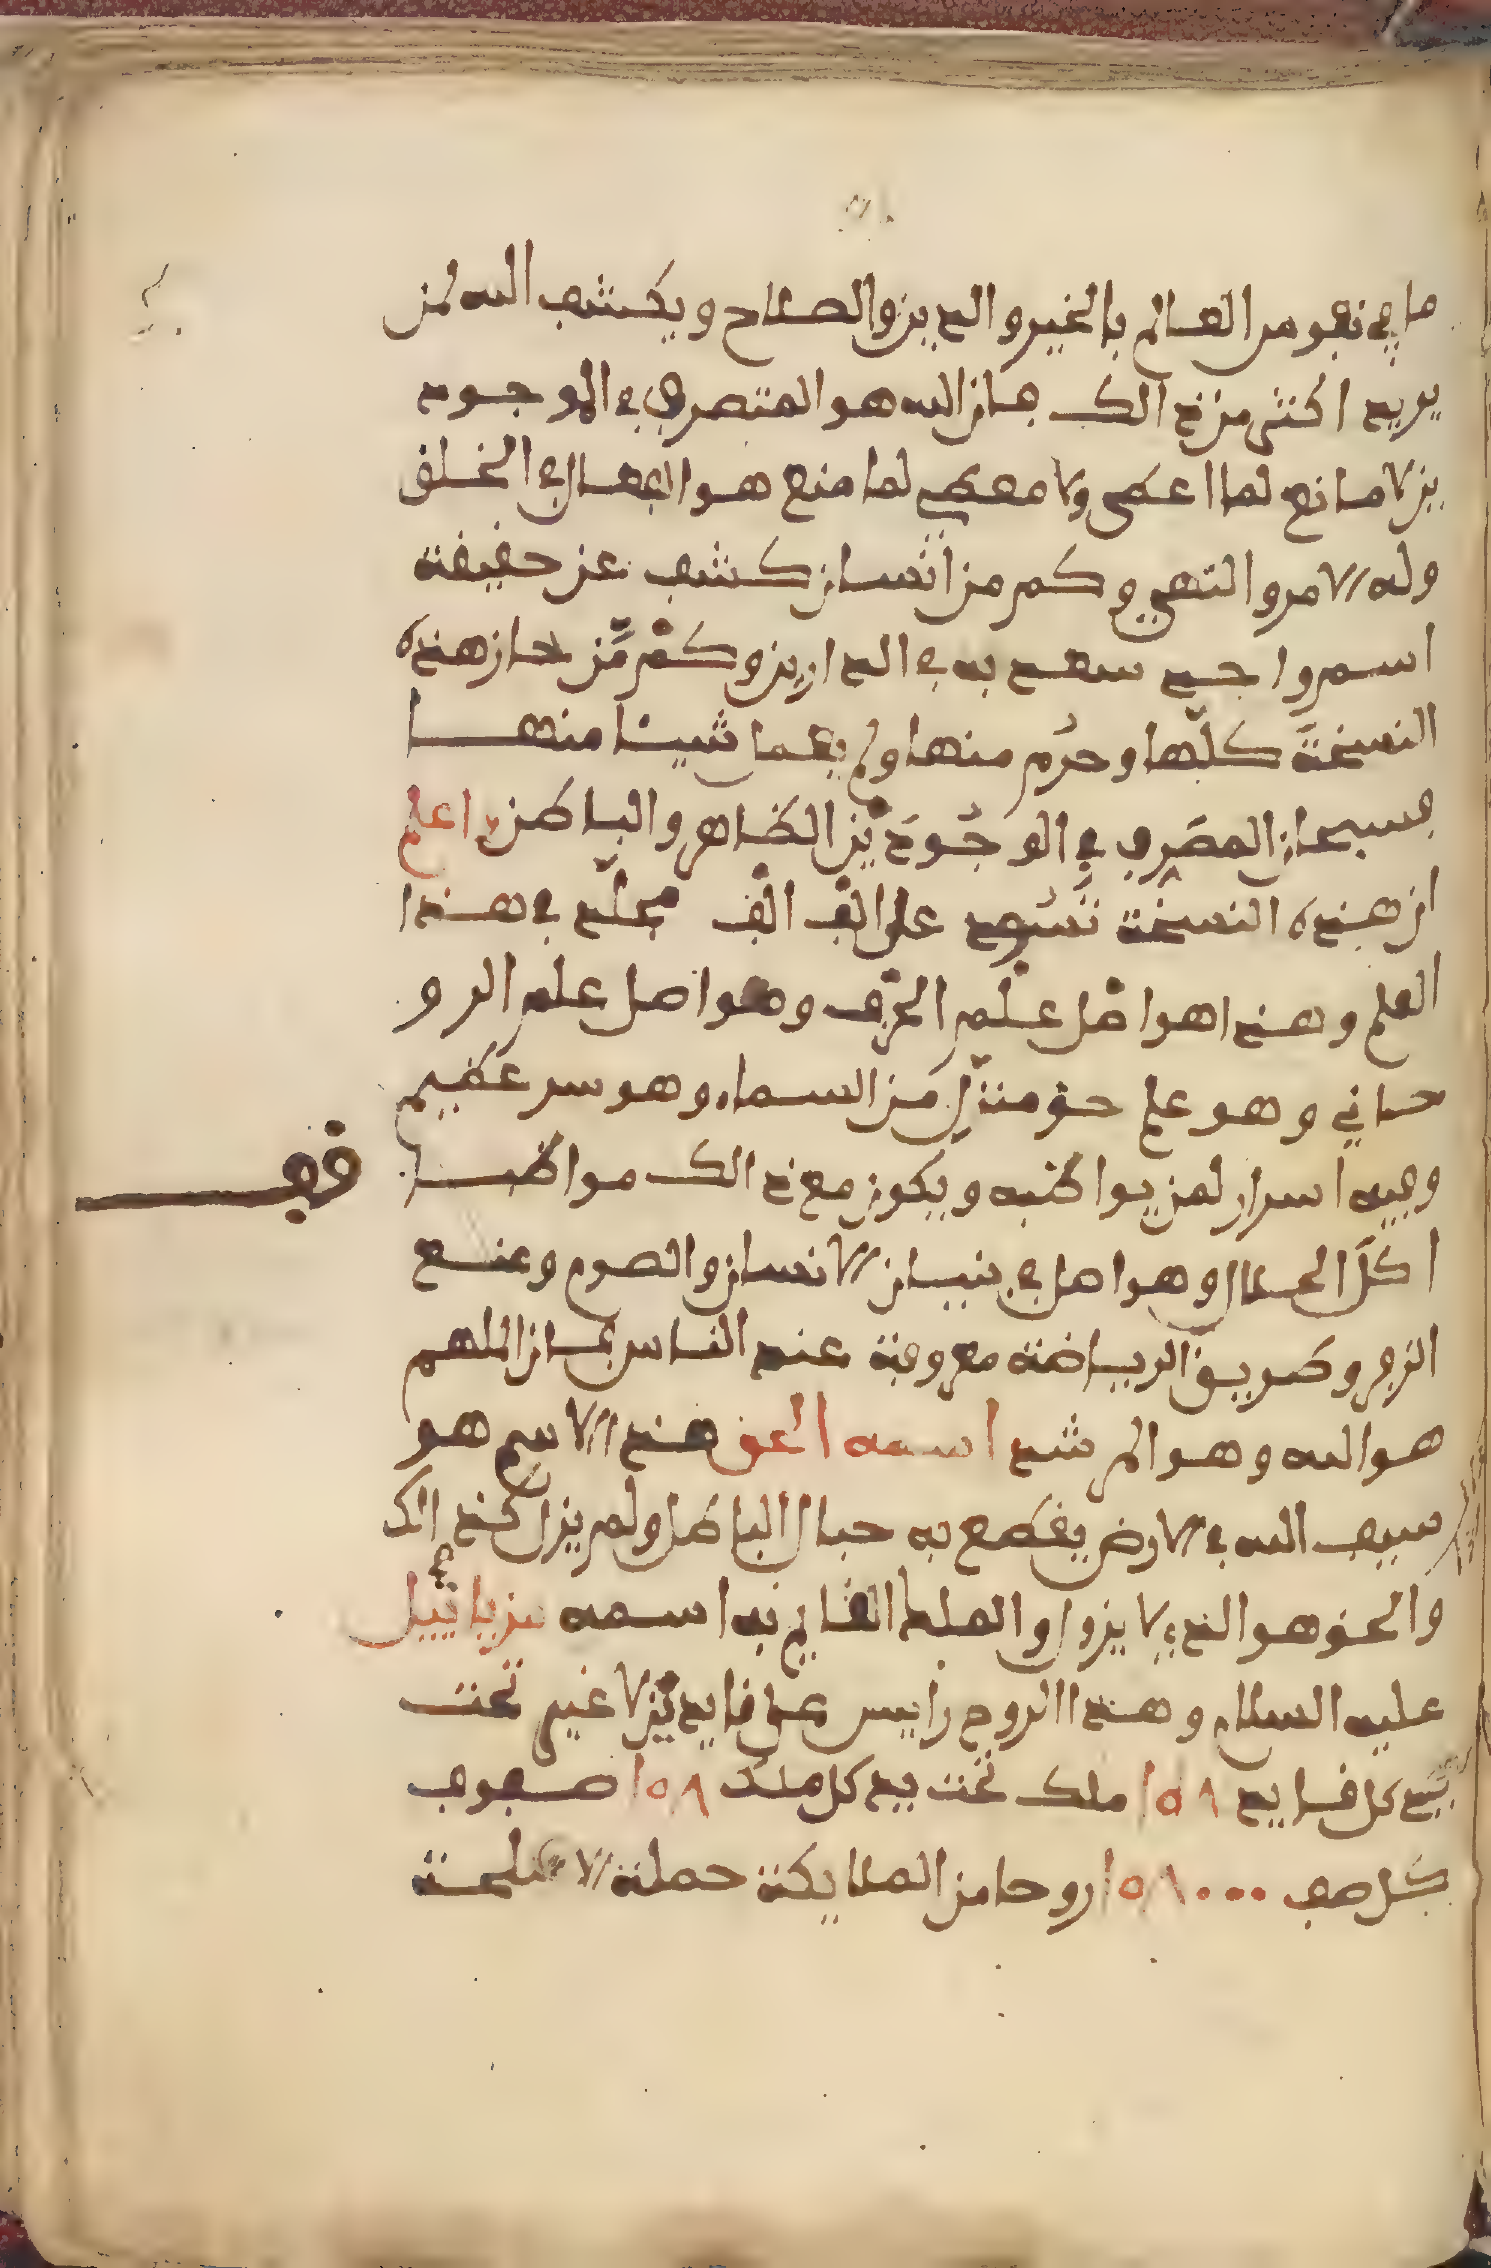 ما في نفوس العالم بالخير والدين والصلاح ويكشف الله لمن
يريد اكثر من ذالك فان الله هو المتصرف في الموجود
ين لا مانع لما اعطى ولا معطي لما منع هو الفعال في الخلق
وله الامر والنهي وكم من انسان كشف عن حقيقة
اسم واحد سعد به في الدارين وكم من حاز هذه
النسخة كلها وحرم منها ولم يعط شيئا منها
فسبحان المصرف في الوجودين الظاهر والباطن اعلم
ان هذه النسخة على الف الف مجلد في هذا
العلم وهذا هو اصل علم الحرف وهو اصل علم الرو
حاني وهو علم حق منزل من السماء وهو سر عظيم
وفيه اسرار لمن يواظبه ويكون مع ذالك مواظبا
اكل الحلال وهو اصل في بنيان الانسان والصوم وعند
وطريق الرياضة معروفة عند الناس فان الملهم
هو الله وهو المرشد اسمه الحق هذا الاسم هو
سيف الله في الارض يقطع به حبال الباطل ولم يزل كذالك
والحق هو الذي لا يزول والملك القايم به اسمه
عليه السلام وهذا الروح رايس على قايدين لا غير تحت
يد كل قايد ١٥٨ ملك تحت يد كل ملك ١٥٨ صفوف
كل صف ١٥٨٠٠٠ روحا من الملايكة حملة الاسلحة